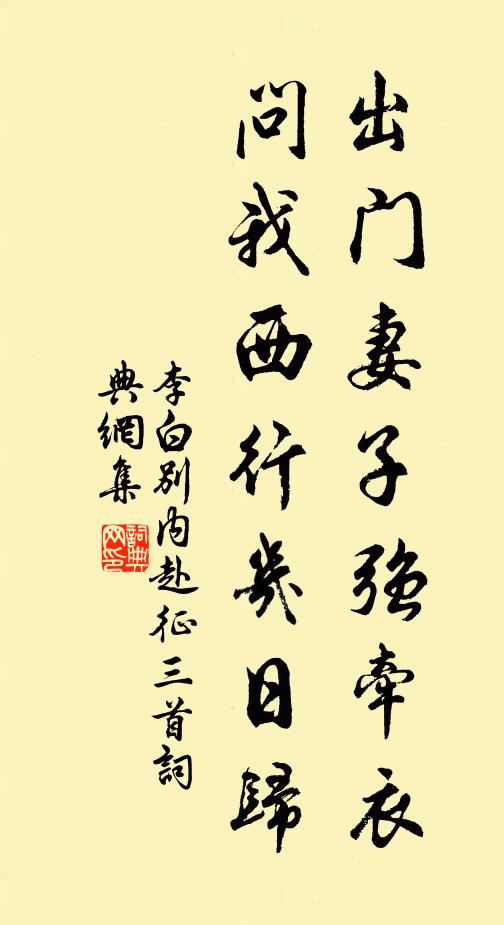 出门妻子强牵衣
问我西行几日歸
李白别内赴征三首詞
典網集
詞典網印